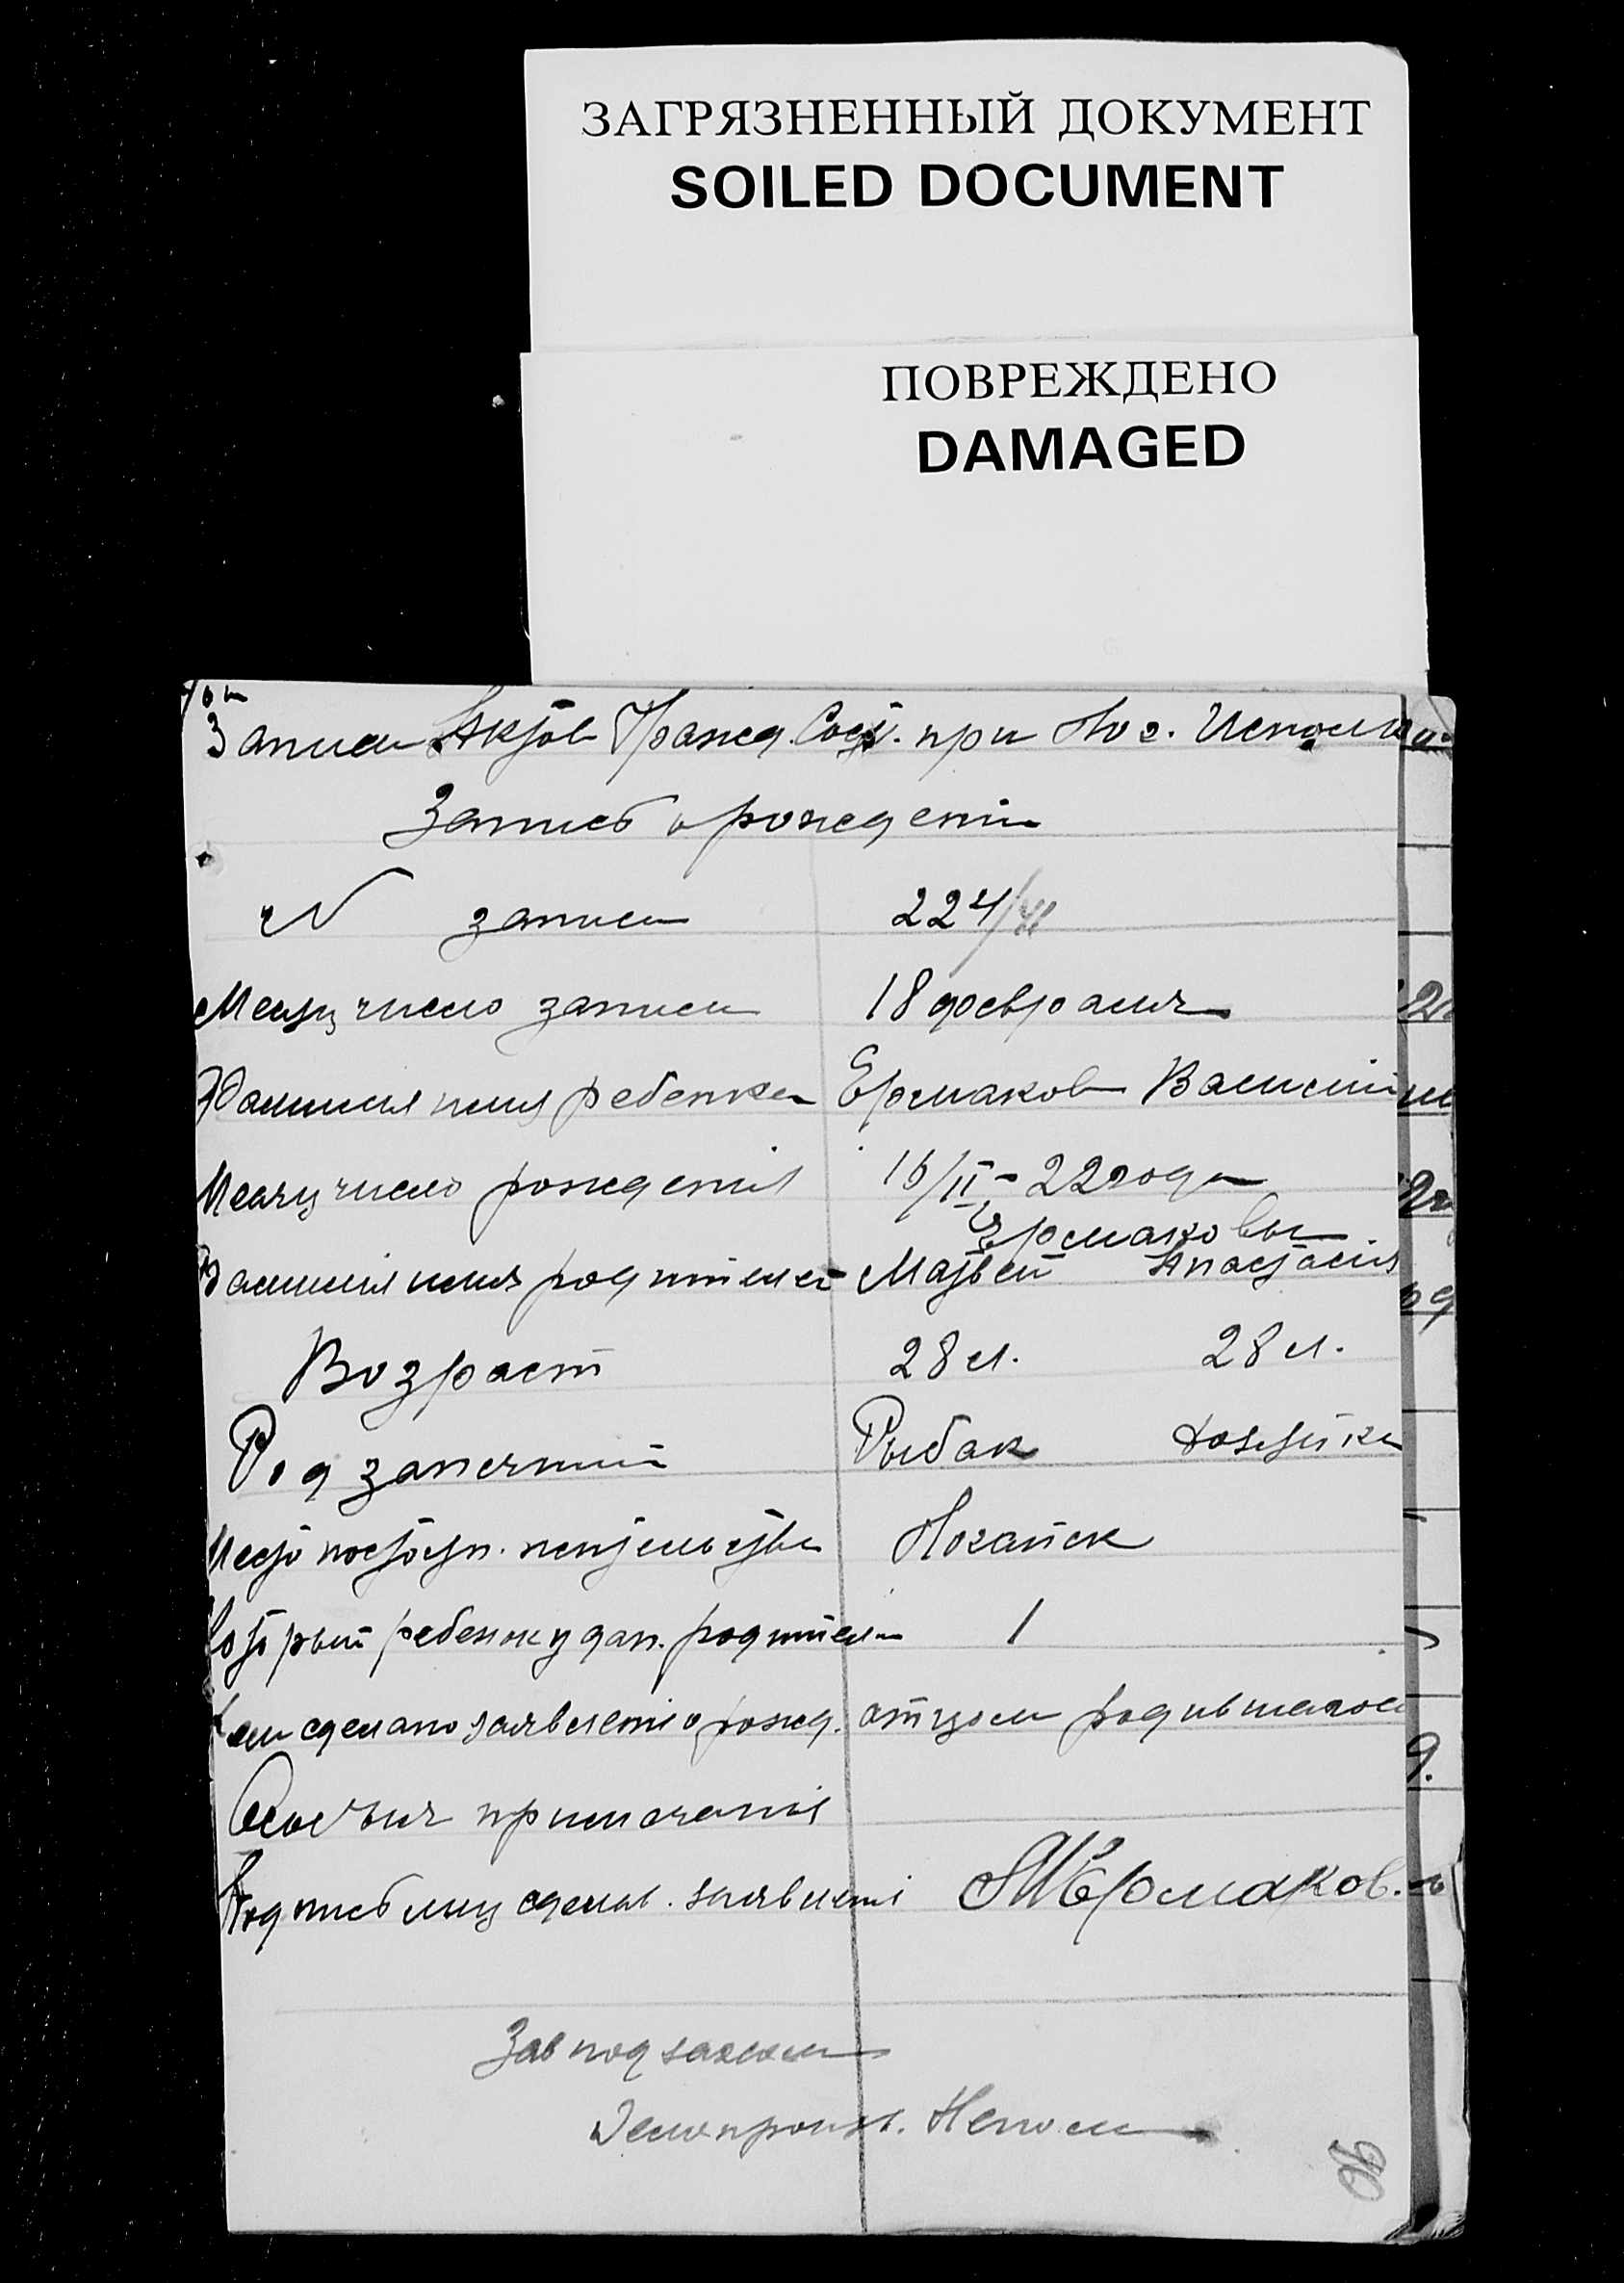 ЗАГРЯЗНЕННЫЙ ДОКУМЕНТ
SOILED DOCUMENT
ПОВРЕЖДЕНО
DAMAGED
Записи Актов Гражд. Сост. при Ног. Исполк
Запись о рождении
N записи 224/
Месяц число записи 18 февраля
Фамилия имя ребенка Ермаков Василий
Месяц число рождения 16/II - 22 года
Ермаковы
Фамилия имя родителей Матвей Анастасия
Возраст 28 л. 28 л.
Род занятий Рыбак хозяйка
Место постоян. жительства Ногайск
Который ребенок у дан. родители 1
Кем сделано заявлени о рожд. отцом родившагося
Особыя примечания
Подпись лиц сделав. заявлени МЕрмаков.
Зав подзагсом
Делопроизв.
96